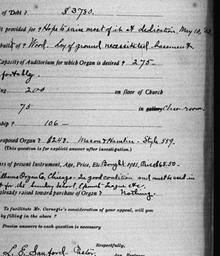 of Debt? $3730.
provided for? Hope to raise most of it at dedication May 10, '03
built of? Wood. Lay of ground necessitated basement
Capacity of Auditorium for which Organ is desired? 275-
fortably.
ing 200 on floor of Church
75 in gallery Class room
ship? 106-
proposed Organ? $248. Mason & Hamlin - Style 559.
(This is required for explicit answer after investigation.)
rs of present Instrument, Age, Price, Etc. Bought 1901. Cost $68.50.
Organ Co. Chicago. In good condition and
for the Sunday school, Epworth League etc.
already raised toward purchase of Organ? Nothing.
To facilitate Mr. Carnegie's consideration of your appeal, will you
by filling in the above?
Pension answers to each question is necessary
Respectfully,
L. E. Sanford. Pastor.